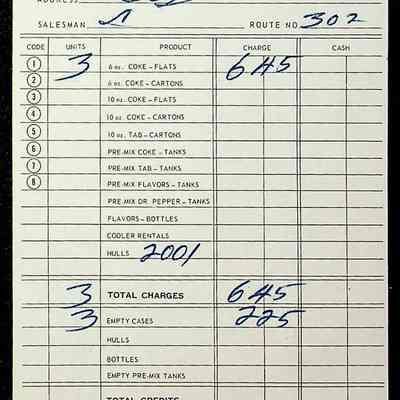 ADDRESS
SALESMAN ROUTE NO 302
CODE UNITS PRODUCT CHARGE CASH
1 3 6 oz. COKE – FLATS 645
2 6 oz. COKE – CARTONS
3 10 oz. COKE – FLATS
4 10 oz. COKE – CARTONS
5 10 oz. TAB – CARTONS
6 PRE-MIX COKE – TANKS
7 PRE-MIX TAB – TANKS
8 PRE-MIX FLAVORS – TANKS
PRE-MIX DR. PEPPER – TANKS
FLAVORS – BOTTLES
COOLER RENTALS
HULLS 2001
3 TOTAL CHARGES 645
3 EMPTY CASES 225
HULLS
BOTTLES
EMPTY PRE-MIX TANKS
TOTAL CREDITS